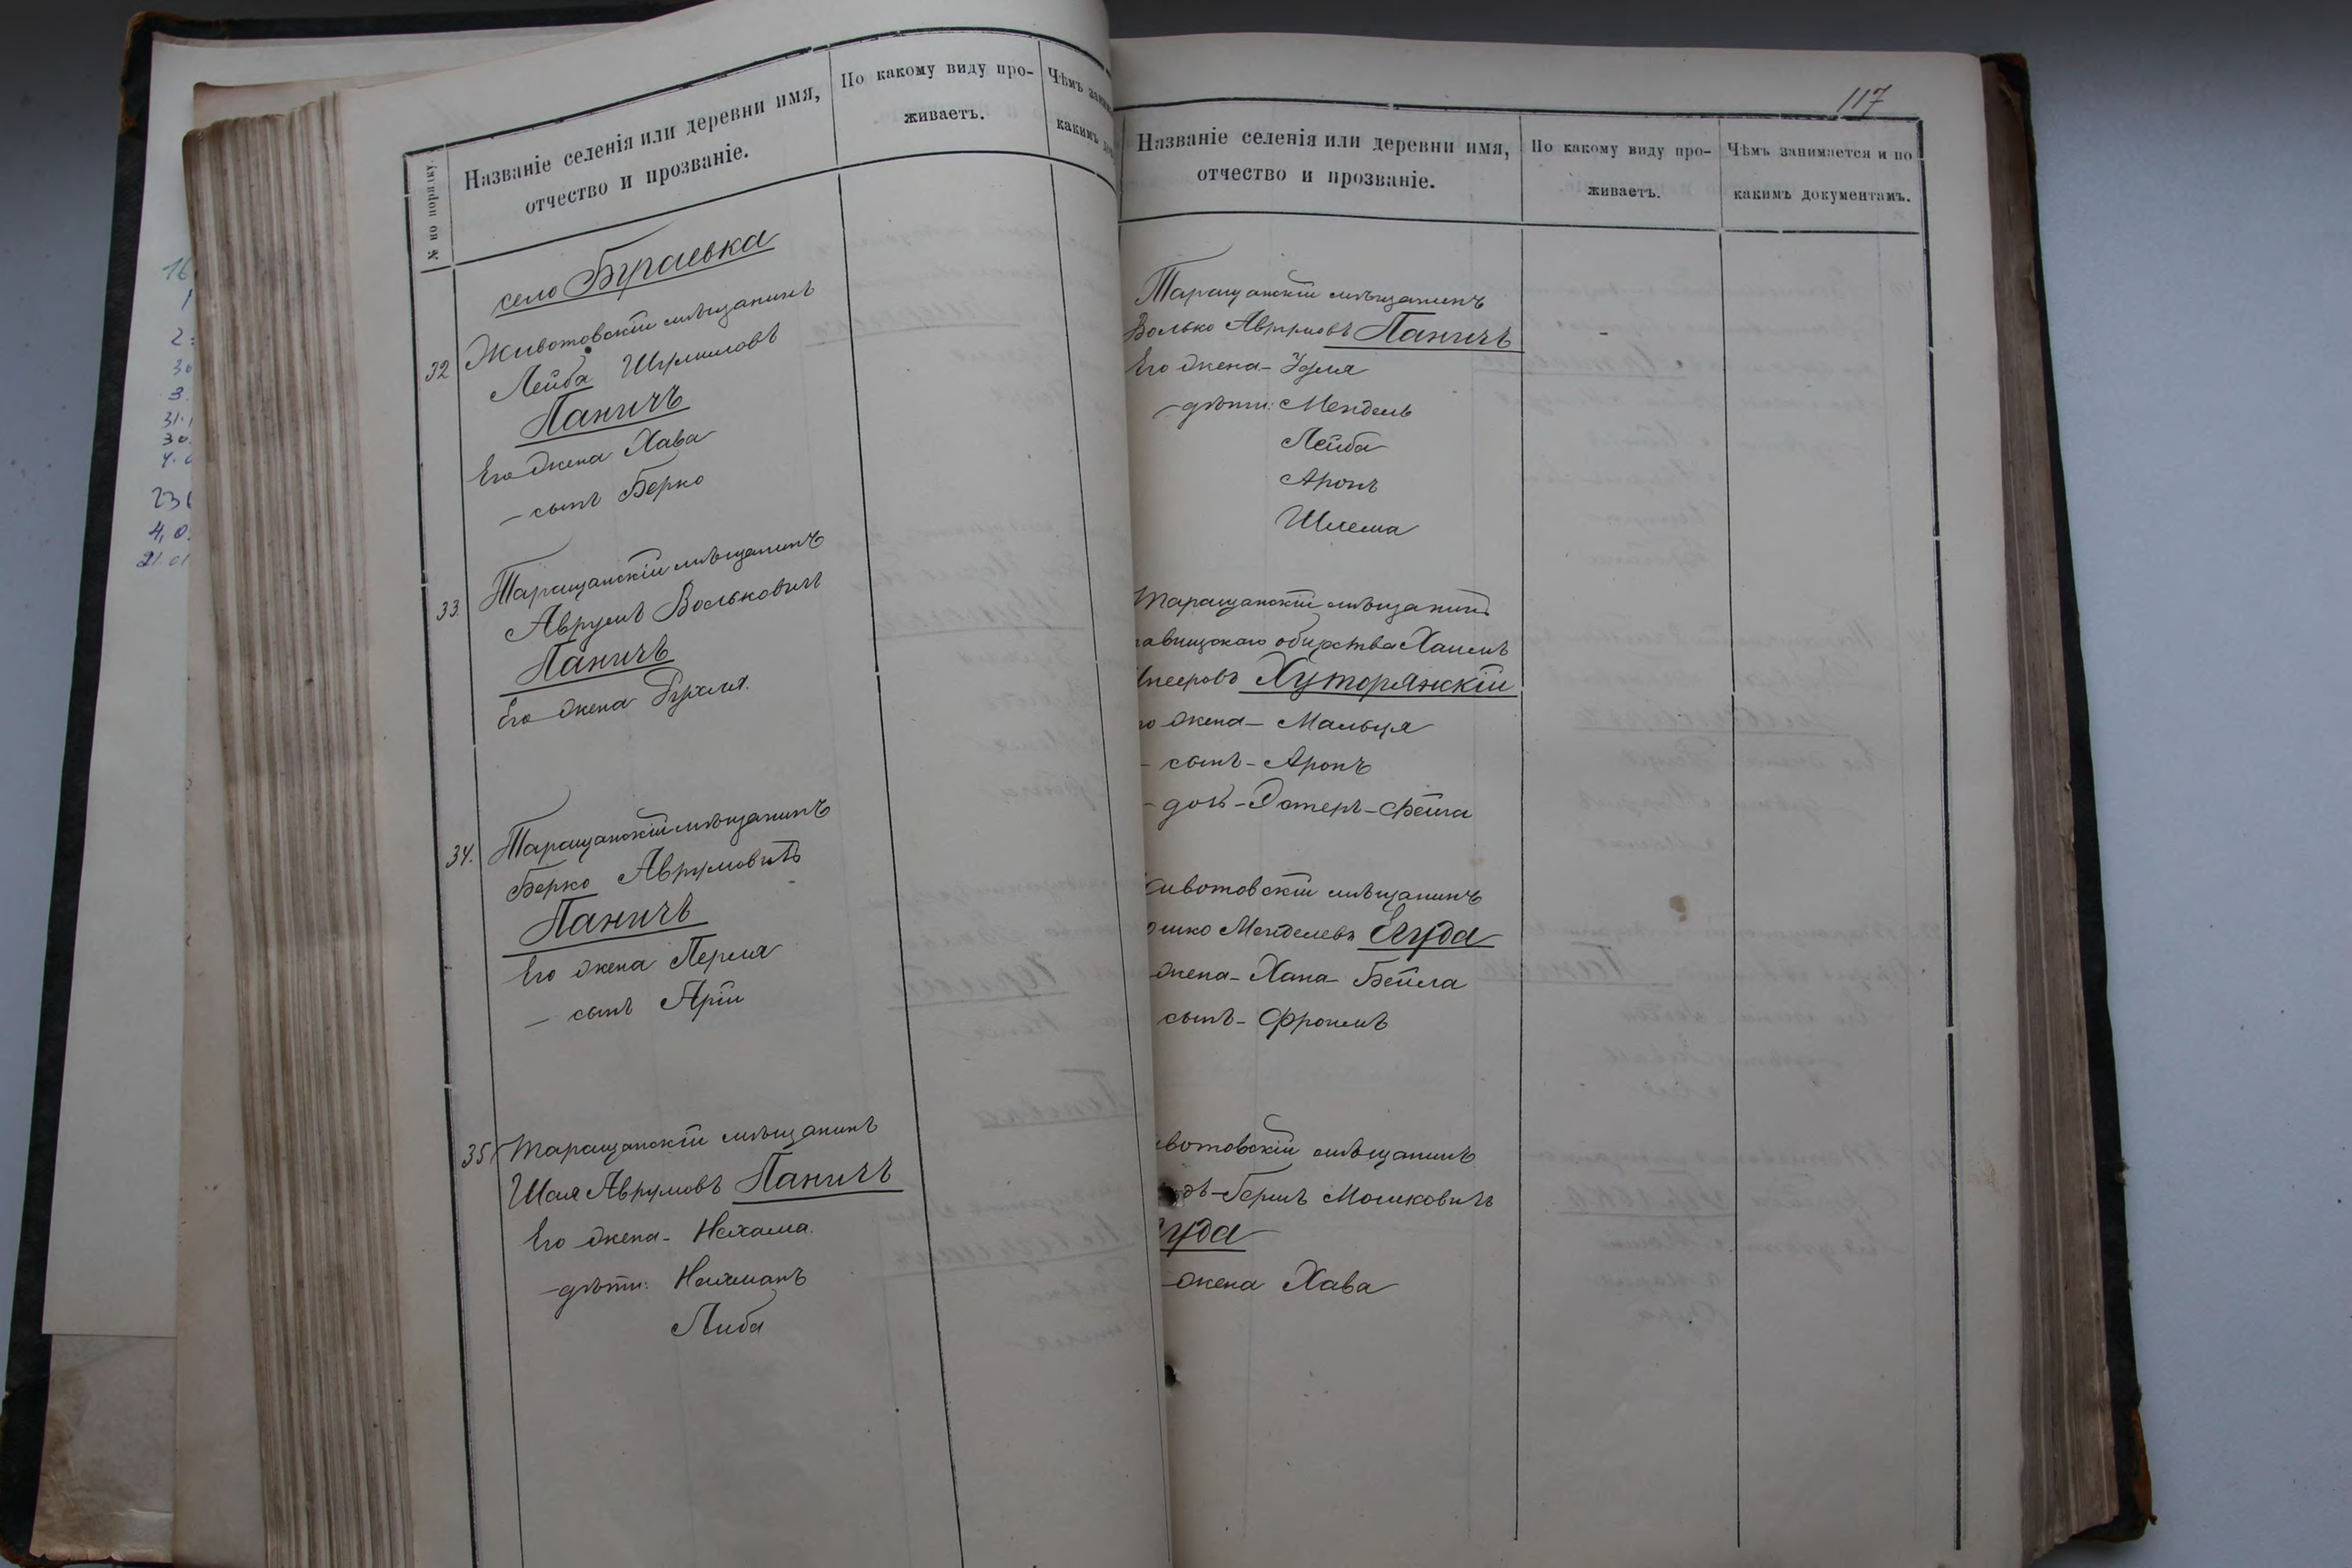 № по порядку.
Названіе селенія или деревни имя,
отчество и прозваніе.
По какому виду про-
живаетъ.
Чѣмъ
какимъ
село Бураевка
32 Животовскій мѣщанинъ
Лейба Шулимовъ
Паничъ
Его жена Хава
— сынъ Берко
33. Таращанскій мѣщанинъ
Аврумъ Вольковичъ
Паничъ
Его жена Рухля.
34. Таращанскій мѣщанинъ
Берко Аврумовичъ
Паничъ
Его жена Перля
— сынъ Арій
35 Таращанскій мѣщанинъ
Шая Аврумовъ Паничъ
Его жена - Нехама.
— дѣти: Нахманъ
Либа
117
Названіе селенія или деревни имя,
отчество и прозваніе.
По какому виду про-
живаетъ.
Чѣмъ занимается и по
какимъ документамъ.
Таращанскій мѣщанинъ
Волько Аврумовъ Паничъ
Его жена - Удля
— дѣти: Мендель
Лейба
Аронъ
Шлема
Таращанскій мѣщанинъ
общества Хаимъ
Хуторянскій
жена - Мальця
- сынъ - Аронъ
- дочь - Эстеръ - Фейга
ивотовскій мѣщанинъ
ошко Менделевъ Ягуда
жена - Хана - Бейла
сынъ - Фроимъ
вотовскій мѣщанинъ
Гершъ Мошковичъ
гуда
жена Хава
16
2
30
3.
31.
30.
4.
4,0.
21.01